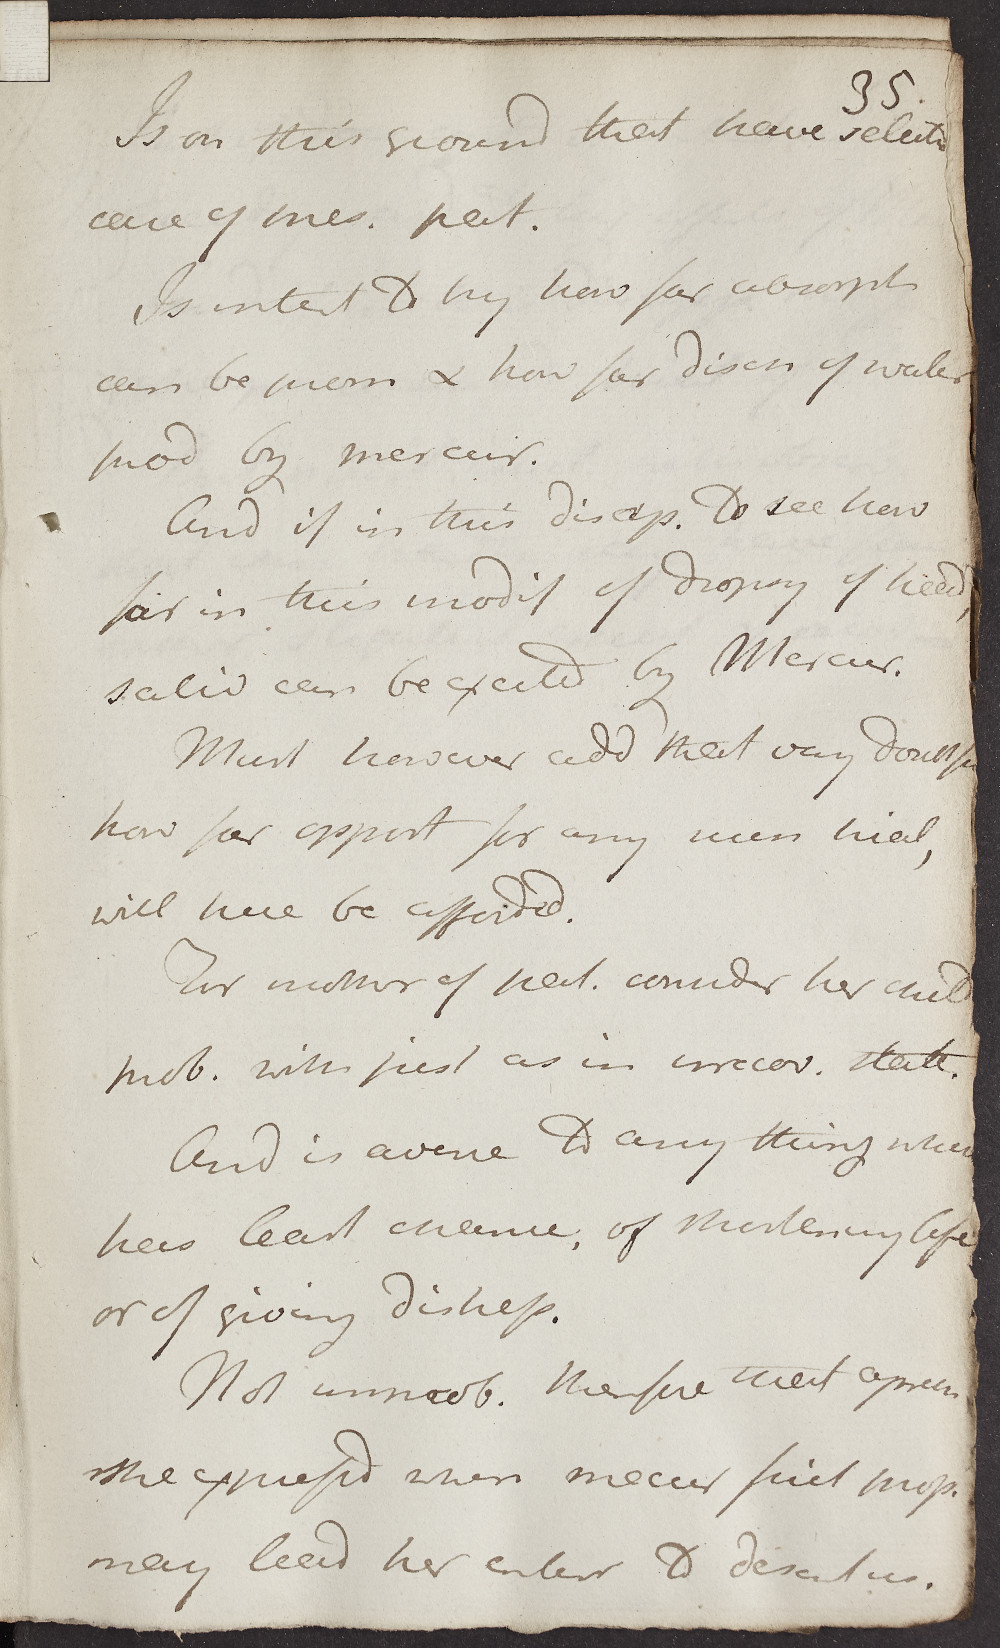 35.
Is on this ground that have selectd
case of pres. pat.
Is intent to try how far absorpt
can be prom & how far disch of water
prod by mercur.
And if in this disap. To see how
far in this modif of dropsy of head,
saliv can be excited by Mercur.
Must however add that very doubtfu
how far opport for any such trial,
will here be afforded.
For mother of pat. consider her child
prob. with just as in irrecov. state.
And is averse to any thing which
has least chance, of shortening life
or of giving distress.
Not improb. therefore that appreh
she expressd when mercur first prop.
may lead her entire to desert us.